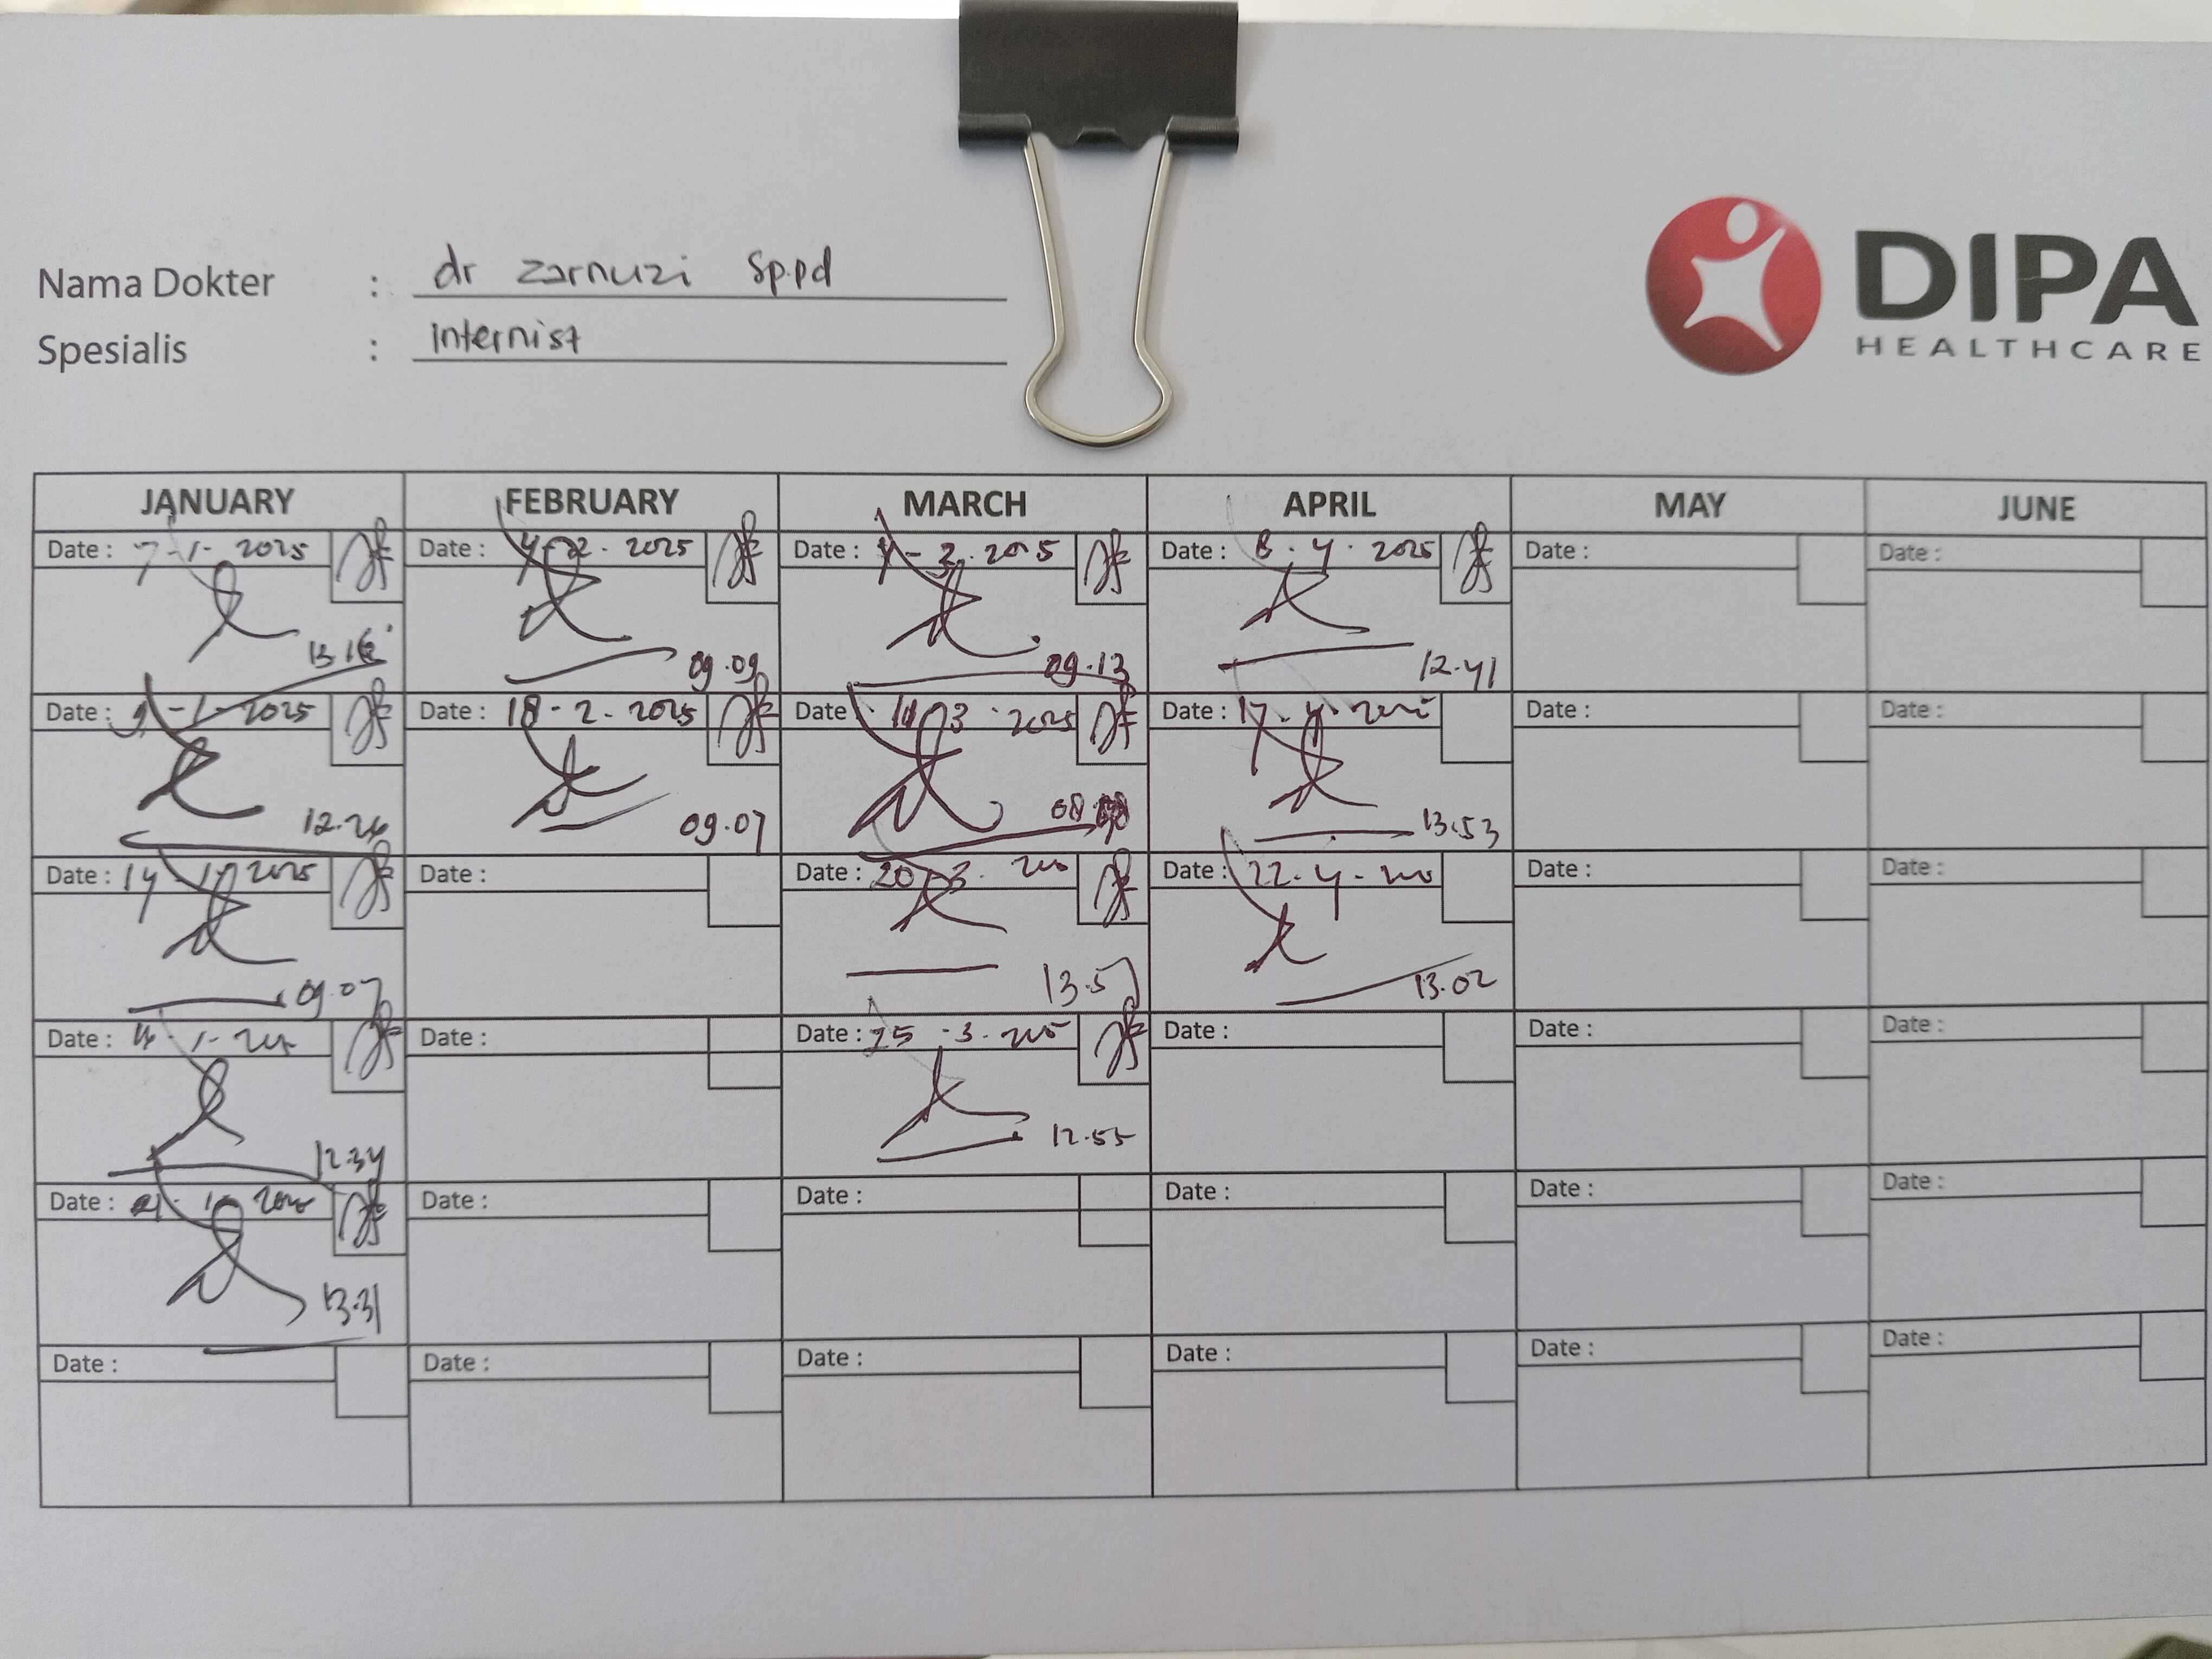 Nama Dokter : dr zarnuzi Sp.pd
Spesialis : Internist
DIPA
HEALTHCARE
JANUARY FEBRUARY MARCH APRIL MAY JUNE
Date : 7-1-2025 Date : 4-2-2025 Date : 4-3-2025 Date : 8.4.2025 Date : Date :
09.09 09.13 12.41
Date : 9-1-2025 Date : 18-2-2025 Date : 3-2025 Date : 17-4-2025 Date : Date :
12.26 09.07 13.53
Date : 14-1-2025 Date : Date : 20-3- Date : 22-4- Date : Date :
09.07 13.57 13.02
Date : Date : Date : 25-3- Date : Date : Date :
12.34 12.55
Date : Date : Date : Date : Date : Date :
13.31
Date : Date : Date : Date : Date : Date :